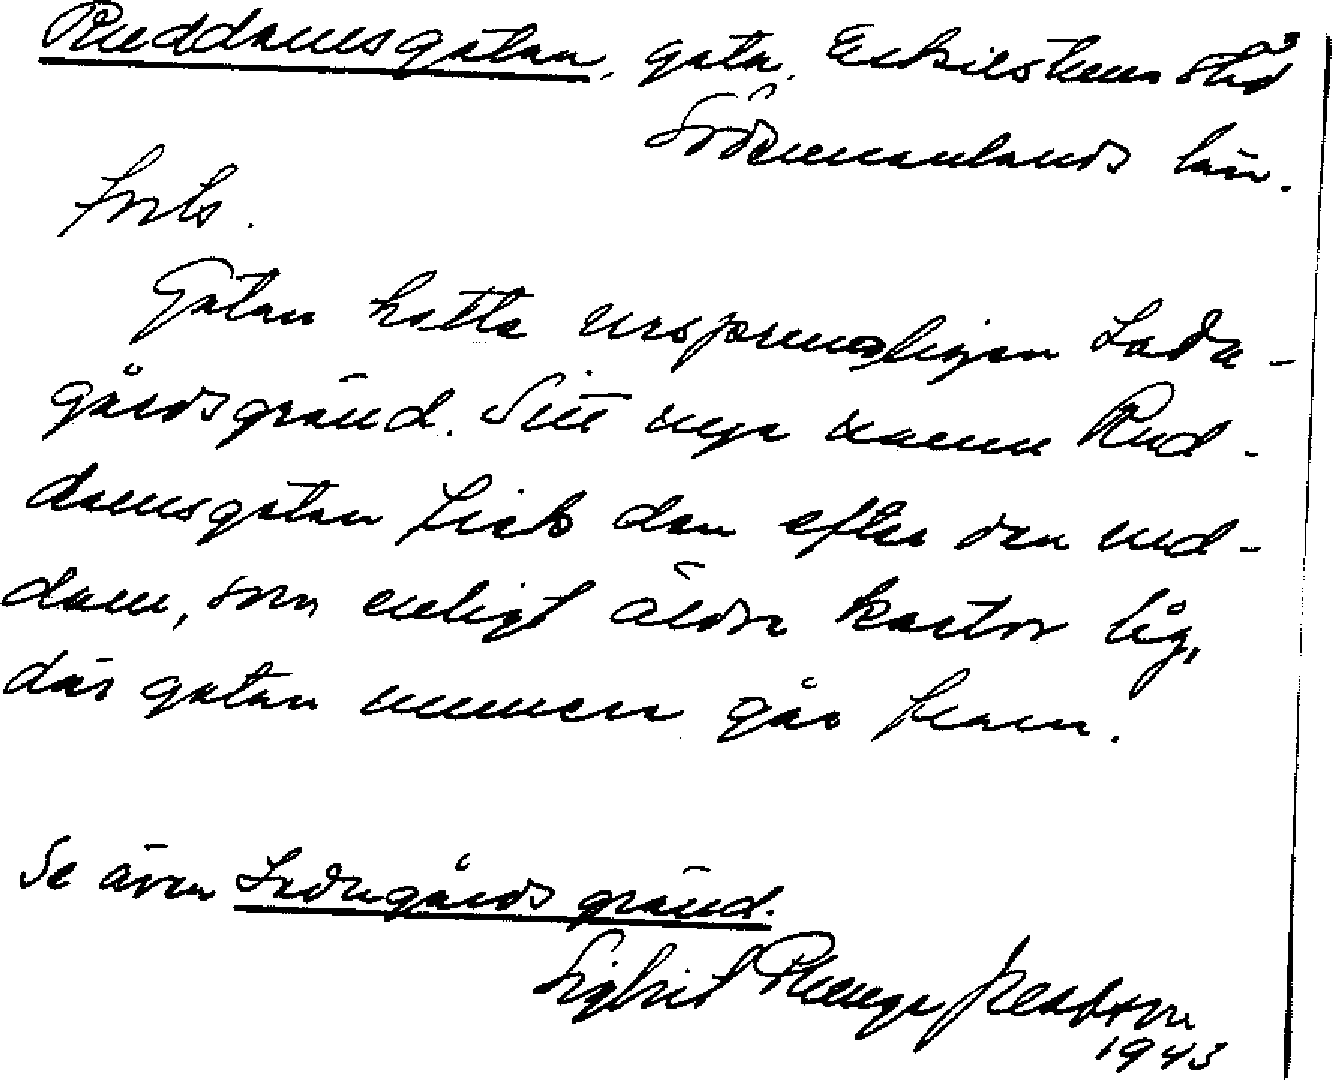 Ruddamsgatan, gata, Eskilstuna stad
Södermanlands län.
Forts.
Gatan hette ursprungligen Lada-
gårdsgränd. Sitt nya namn Rud-
damsgatan fick den efter den rud-
dam, som enligt äldre kartor låg,
där gatan nummera går fram.
Se även Ladugårdsgränd.
Sigbrit Plænge Jacobson
1943